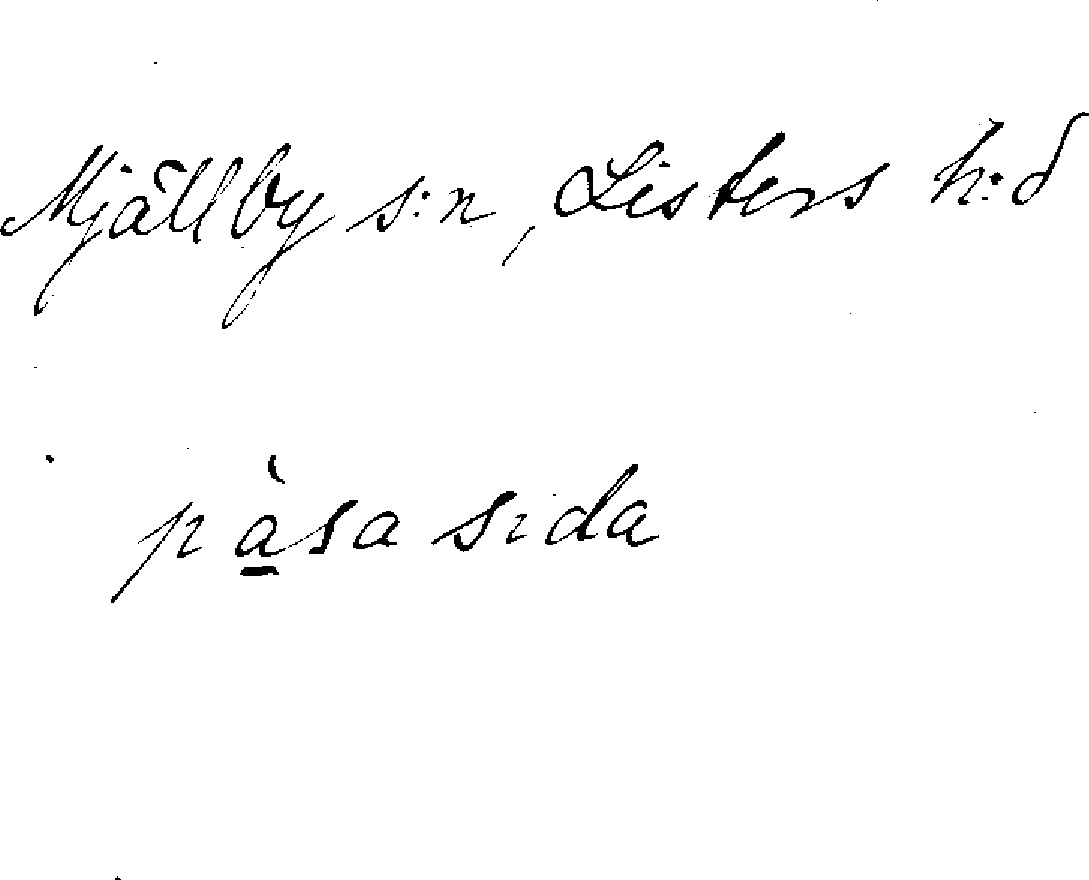 Mjällby s:n, Listers h:d
pàsa sida